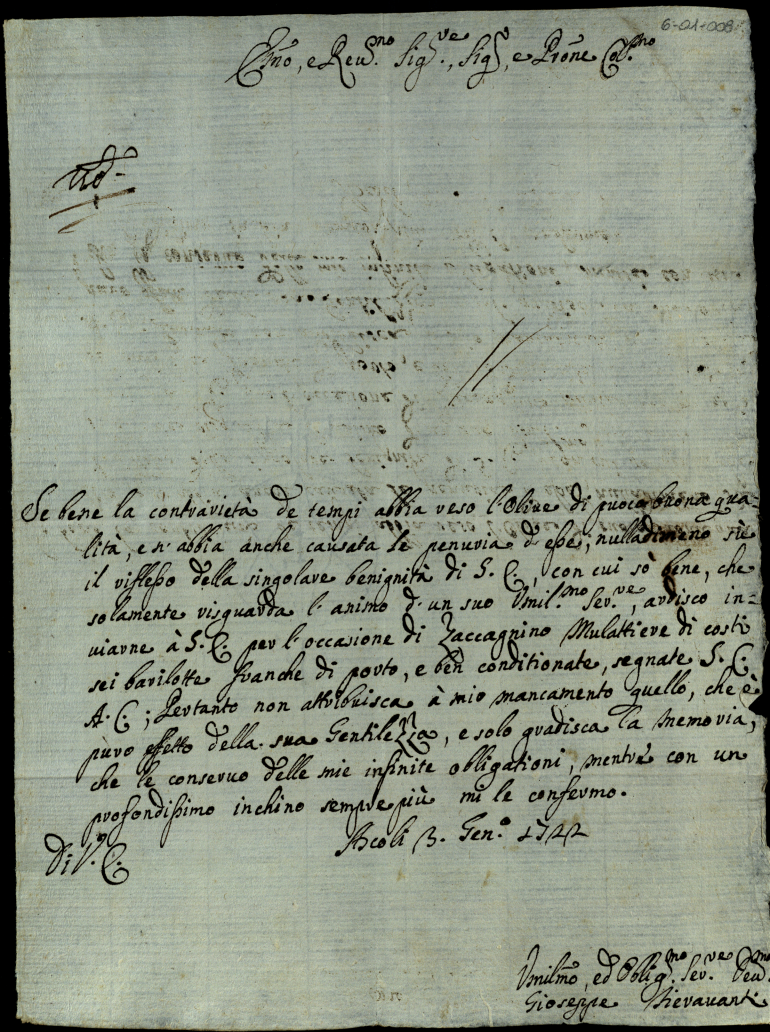 6-01-008
Em̃o, e Reu.mo Sig.re, Sig.r, e Pr̃one Col.mo
Se bene la contrarietà de tempi abbia reso l'Olive di puoca buona qua-
lità, e n'abbia anche causata le penuria d'esse; nulladimeno sù
il riflesso della singolare benignità di V. E., con cui sò bene, che
solamente risguarda l'animo d'un suo Umil.mo Ser.re, ardisco in-
viarne à V. E. per l'occasione di Zaccagnino Mulattiere di costì
sei barilotte franche di porto, e ben conditionate, segnate S. C.
A. C.; Pertanto non attribuisca à mio mancamento quello, che è
puro effetto della sua Gentilezza, e solo gradisca la memoria,
che le conservo delle mie infinite obligationi, mentre con un
profondissimo inchino sempre più mi le confermo.
Di V. E.
Ascoli 3. Gen.o 1722
Umilm̃o, ed Oblig.mo Ser.re Deu.mo
Gioseppe